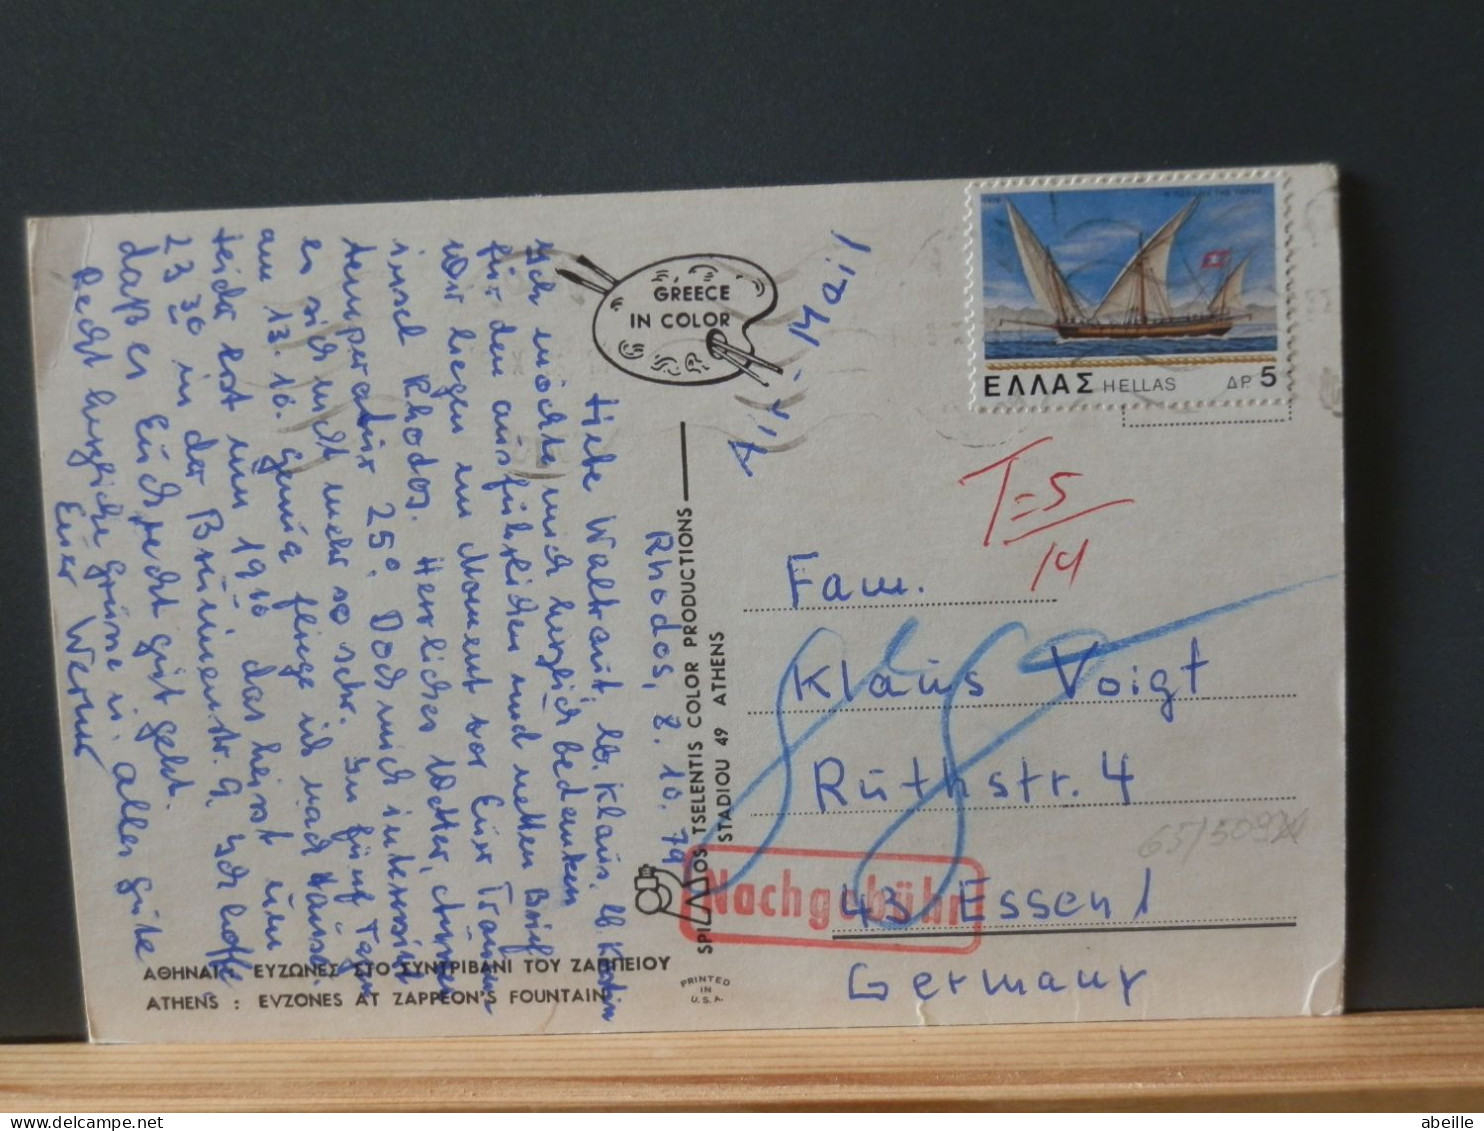 GREECE
IN COLOR
Air-Mail
ΕΛΛΑΣ HELLAS ΔΡ. 5
T=5/14
Rhodos, 8.10.79
Liebe Waltraut, lb. Klaus, lb.
Ich möchte mich herzlich bedanken
für den ausführlichen und netten Brief.
Wir liegen im Moment vor Eurer Trauminsel
Rhodos. Herrliches Wetter,
temperatur 25°. Doch mich interessiert
es nicht mehr so sehr. In fünf Tagen
am 13.10. fliege ich nach Hause.
um 19 10 das heisst um
23 30 in der Brünnenstr. 9. Ich hoffe
daß es Euch recht gut geht.
Recht herzliche Grüsse u. alles Gute
Euer Werner
SPILIOS TSELENTIS COLOR PRODUCTIONS
STADIOU 49 ATHENS
Fam.
Klaus Voigt
Rüthstr. 4
65/5092
Nachgebühr
43 Essen 1
Germany
ΑΘΗΝΑΙ : ΕΥΖΩΝΕΣ ΣΤΟ ΣΥΝΤΡΙΒΑΝΙ ΤΟΥ ΖΑΠΠΕΙΟΥ
ATHENS : EVZONES AT ZAPPEON'S FOUNTAIN
PRINTED
IN
U.S.A.
abeille